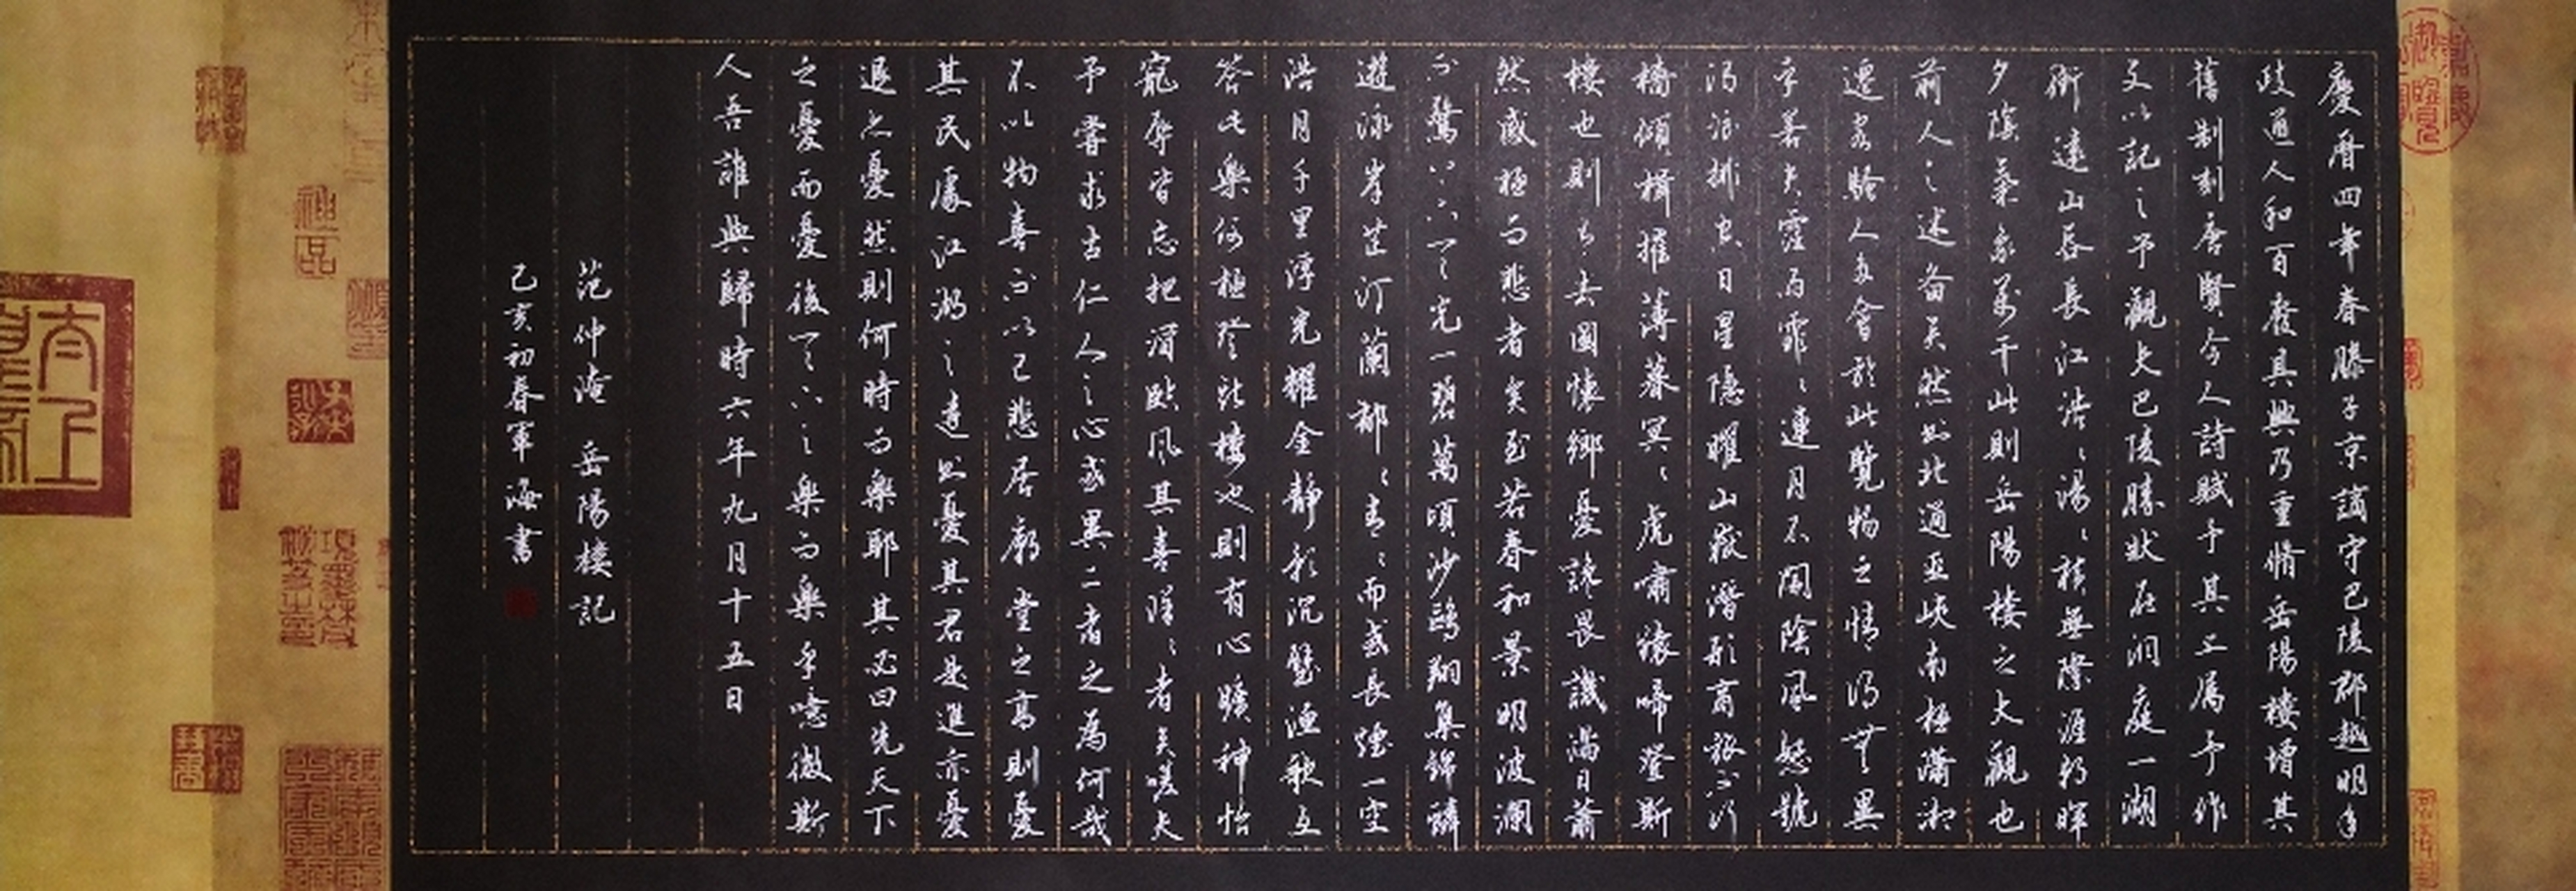 慶曆四年春滕子京謫守巴陵郡越明年
政通人和百廢具興乃重脩岳陽樓增其
舊制刻唐賢今人詩賦于其上屬予作
文以記之予觀夫巴陵勝狀在洞庭一湖
銜遠山吞長江浩〻湯〻橫無際涯朝暉
夕陰氣象萬千此則岳陽樓之大觀也
前人之述备矣然則北通巫峽南極瀟湘
遷客騷人多會於此覽物之情得無異
乎若夫霪雨霏〻連月不開陰風怒號
濁浪排空日星隱曜山嶽潛形商旅不行
檣傾楫摧薄暮冥〻虎嘯猿啼登斯
樓也則有去國懷鄉憂讒畏譏滿目蕭
然感極而悲者矣至若春和景明波瀾
不驚上下天光一碧萬頃沙鷗翔集錦鱗
遊泳岸芷汀蘭郁〻青〻而或長煙一空
浩月千里浮光耀金靜影沉璧漁歌互
答此樂何極登斯樓也則有心曠神怡
寵辱皆忘把酒臨風其喜洋〻者矣嗟夫
予嘗求古仁人之心或異二者之為何哉
不以物喜不以己悲居廟堂之高則憂
其民處江湖之遠則憂其君是進亦憂
退亦憂然則何時而樂耶其必曰先天下
之憂而憂後天下之樂而樂乎噫微斯
人吾誰與歸時六年九月十五日
范仲淹 岳陽樓記
己亥初春軍海書
神品
太上